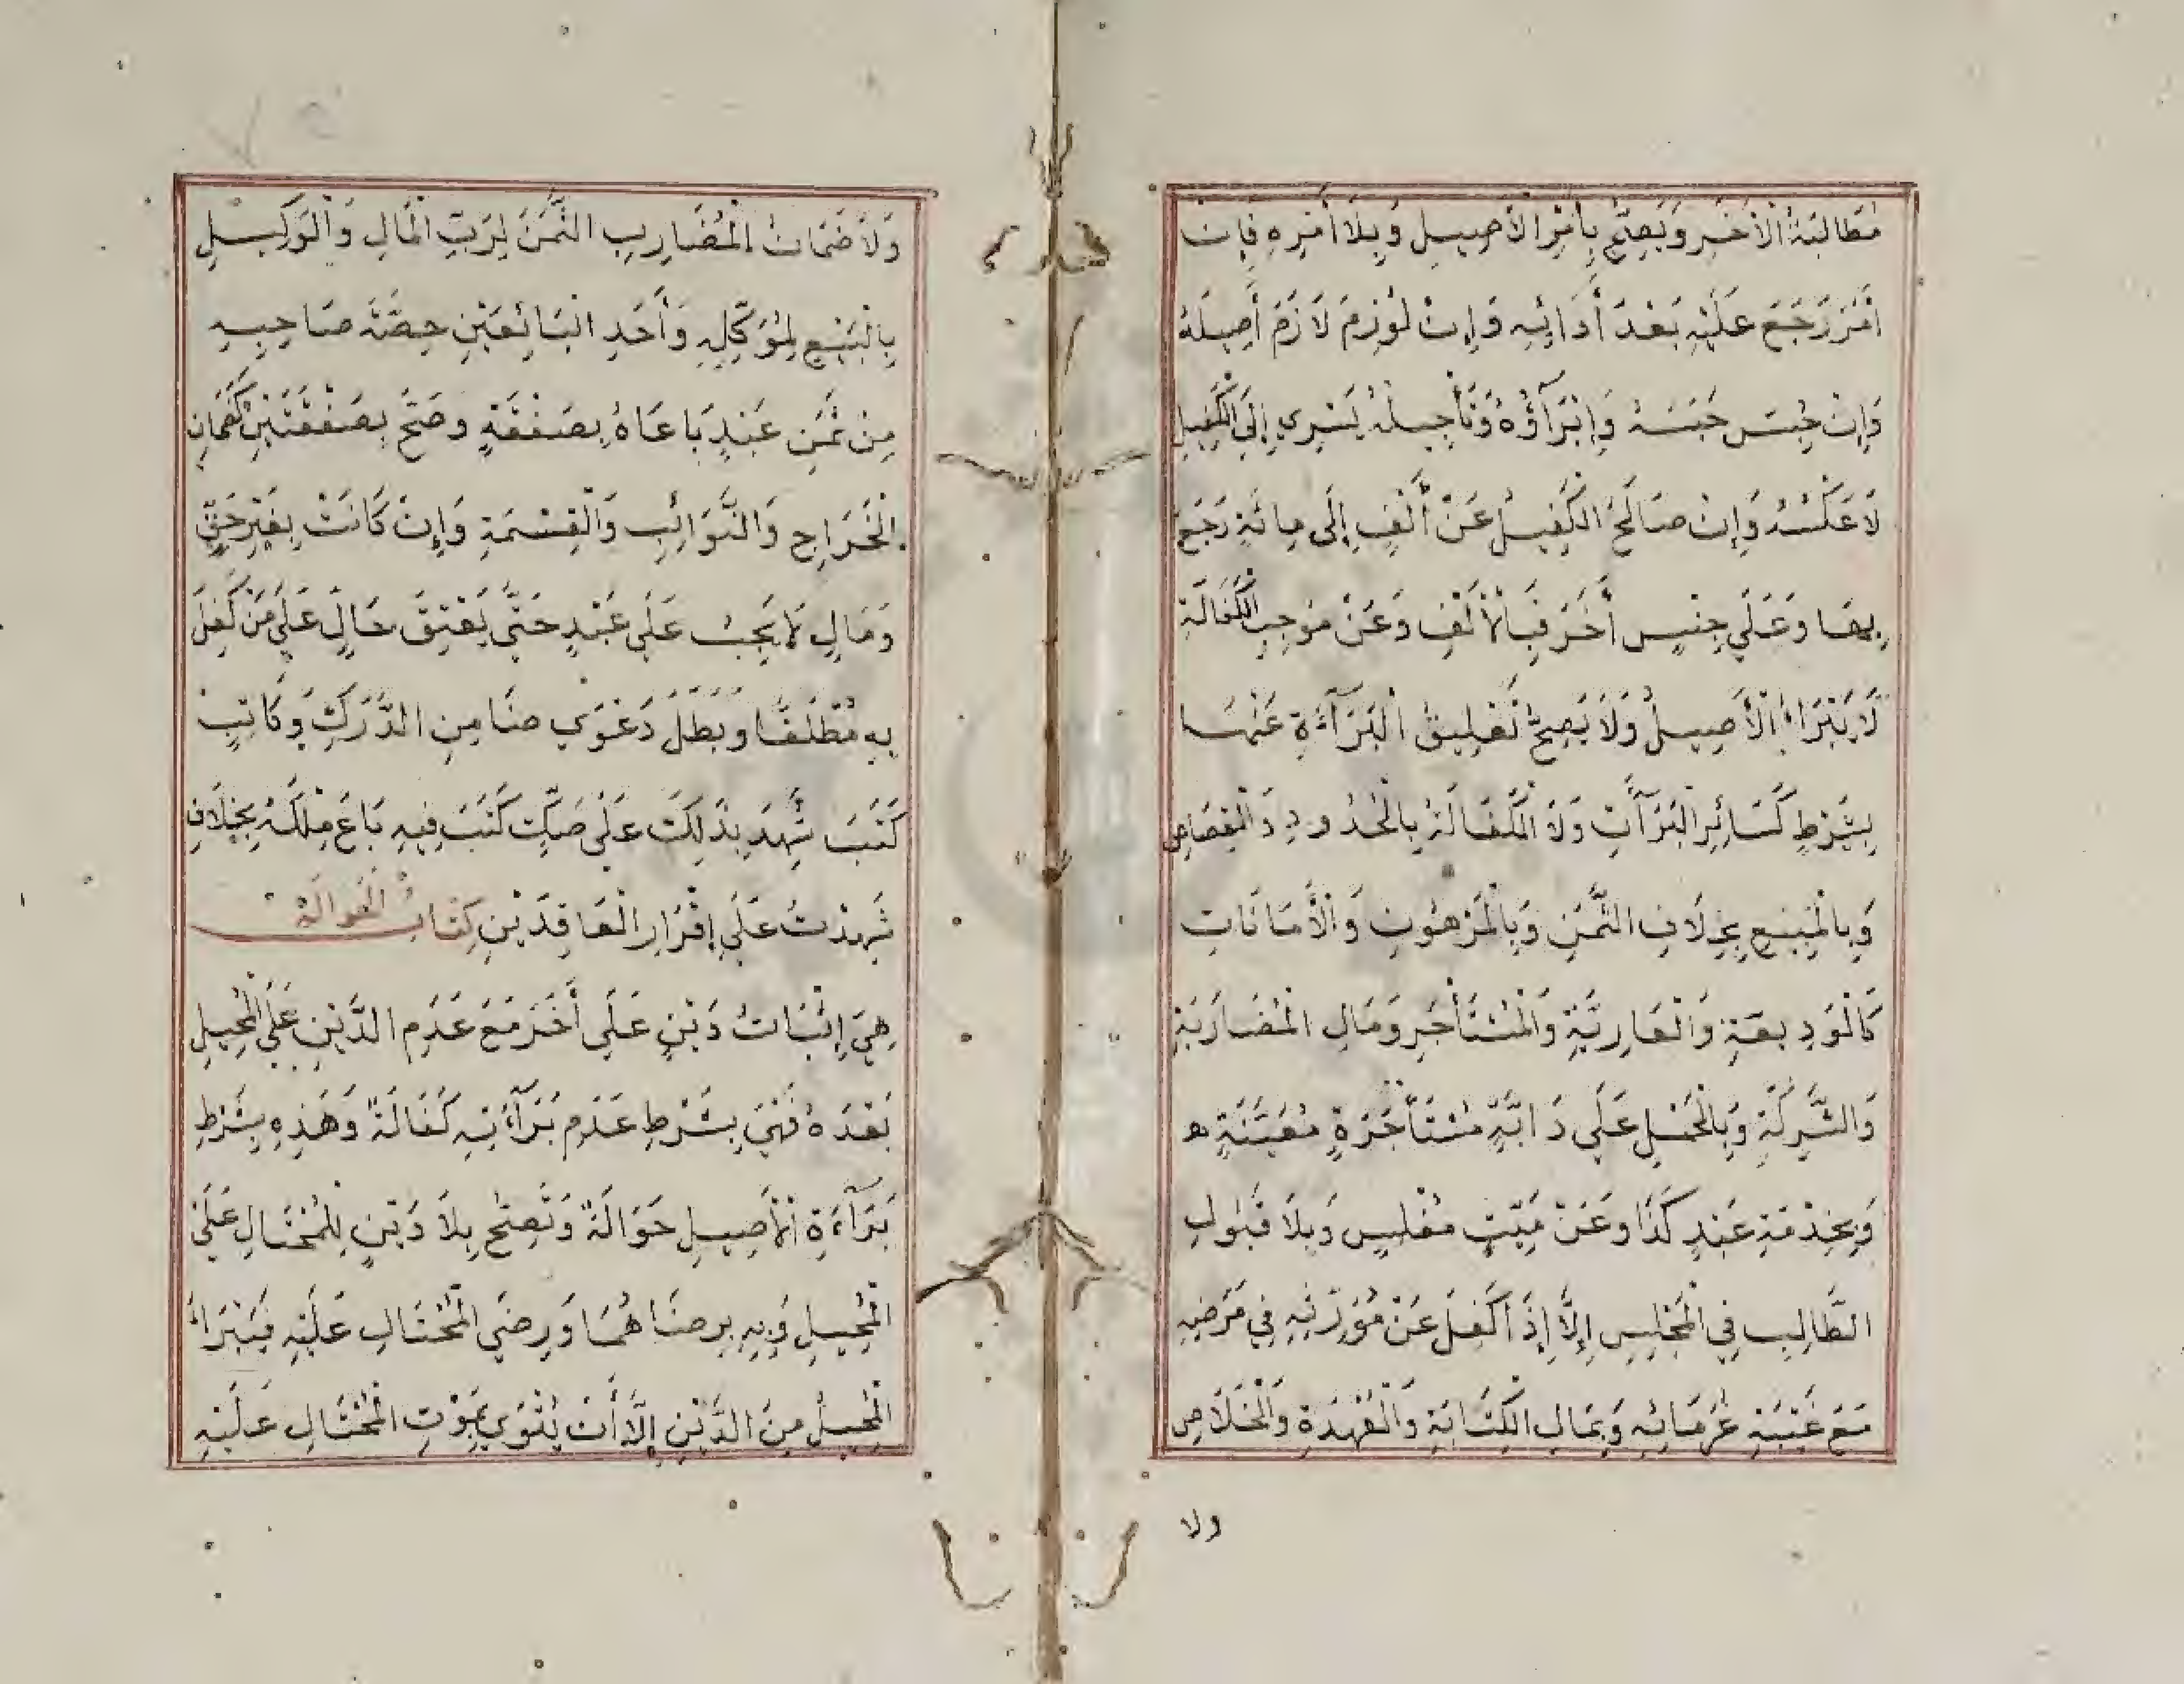 مُطَالَبَةُ الْآخَرِ وَيَصِحُّ بِأَمْرِ الْأَصِيلِ وَبِلَا أَمْرِهِ فَإِنْ
أَمَرَ رَجَعَ عَلَيْهِ بَعْدَ أَدَائِهِ وَإِنْ لُوزِمَ لَازَمَ أَصِيلَهُ
وَإِنْ حُبِسَ حَبَسَهُ وَإِبْرَآؤُهُ وَتَأْجِيلُهُ يَسْرِي إِلَى الْكَفِيلِ
لَا عَكْسُهُ وَإِنْ صَالَحَ الْكَفِيلُ عَنْ أَلْفٍ إِلَى مِائَةٍ رَجَعَ
بِهَا وَعَلَى جِنْسٍ أَخَرَ فَبِالْأَلْفِ وَعَنْ مُوجِبِ الْكَفَالَةِ
لَا يَبْرَاءُ الْأَصِيلُ وَلَا يَصِحُّ تَعْلِيقُ الْبَرَآءَةِ عَنْهَا
بِشَرْطٍ كَسَائِرِ الْبَرَآتِ وَلَا الْكَفَالَةُ بِالْحُدُودِ وَالْقِصَاصِ
وَبِالْمَبِيعِ بِخِلَافِ الثَّمَنِ وَبِالْمَرْهُونِ وَالْأَمَانَاتِ
كَالْوَدِيعَةِ وَالْعَارِيَّةِ وَالْمُسْتَأْجَرِ وَمَالِ الْمُضَارَبَةِ
وَالشِّرْكَةِ وَبِالْحَمْلِ عَلَى دَابَّةٍ مُسْتَأْجَرَةٍ مُعَيَّنَةٍ ه
وَبِخِدْمَةِ عَبْدٍ كَذَا وَعَنْ مَيِّتٍ مُفْلِسٍ وَبِلَا قَبُولِ
الطَّالِبِ فِي الْمَجْلِسِ إِلَّا إِذَا كَفَلَ عَنْ مُوَرِّثِهِ فِي مَرَضِهِ
مَعَ غَيْبَةِ غُرَمَائِهِ وَبِمَالِ الْكِتَابَةِ وَالْعُهْدَةِ وَالْخَلَاصِ
ولا
وَلَا ضَمَانُ الْمُضَارِبِ الثَّمَنَ لِرَبِّ الْمَالِ وَالْوَكِيلِ
بِالْبَيْعِ لِمُوَكِّلِهِ وَأَحَدِ الْبَائِعَيْنِ حِصَّةَ صَاحِبِهِ
مِنْ ثَمَنِ عَبْدٍ بَاعَاهُ بِصَفْقَةٍ وَصَحَّ بِصَفْقَتَيْنِ كَضَمَانِ
الْخَرَاجِ وَالنَّوَائِبِ وَالْقِسْمَةِ وَإِنْ كَانَتْ بِغَيْرِ حَقٍّ
وَمَالٍ لَا يَجِبُ عَلَى عَبْدٍ حَتَّى يَعْتِقَ حَالٍّ عَلَى مَنْ كَفَلَ
بِهِ مُطْلَقًا وَبَطَلَ دَعْوَى ضَامِنِ الدَّرَكِ وَكَاتِبٍ
كَتَبَ شَهِدَ بِذَلِكَ عَلَى صَكٍّ كُتِبَ فِيهِ بَاعَ مِلْكَهُ بِخِلَافِ
شَهِدْتُ عَلَى إِقْرَارِ الْعَاقِدَيْنِ كِتَابُ الْحَوَالَةِ
هِيَ إِثْبَاتُ دَيْنٍ عَلَى أَخَرَ مَعَ عَدَمِ الدَّيْنِ عَلَى الْمُحِيلِ
بَعْدَهُ فَهِيَ بِشَرْطِ عَدَمِ بَرَآءَتِهِ كَفَالَةٌ وَهَذِهِ بِشَرْطِ
بَرَآءَةِ الْأَصِيلِ حَوَالَةٌ وَتَصِحُّ بِلَا دَيْنٍ لِلْمُحْتَالِ عَلَى
الْمُحِيلِ وَبِهِ بِرِضَاهُمَا وَرِضَى الْمُحْتَالِ عَلَيْهِ فَيَبْرَاءُ
الْمُحِيلُ مِنَ الدَّيْنِ إِلَّا أَنْ يُتْوَى بِمَوْتِ الْمُحْتَالِ عَلَيْهِ